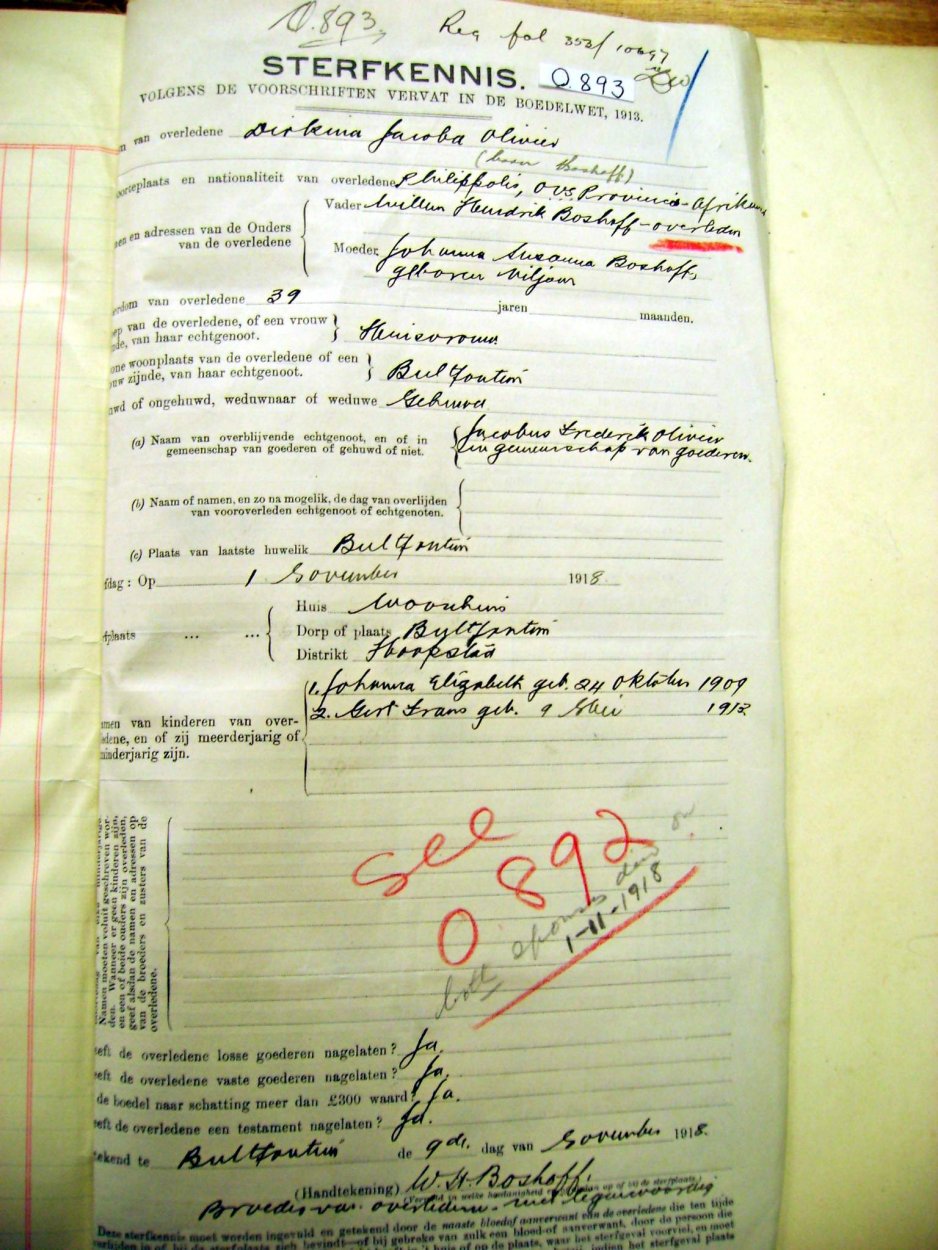 O.893.
Reg fol 353/10697
STERFKENNIS. O893
VOLGENS DE VOORSCHRIFTEN VERVAT IN DE BOEDELWET, 1913.
van overledene Dirkina Jacoba Olivier
(born Boshoff)
oorteplaats en nationaliteit van overledene Philippolis, OVS Provincie - Afrikaans
Vader Willem Hendrik Boshoff - overleden
en en adressen van de Ouders
van de overledene
Moeder Johanna Susanna Boshoff,
geboren Viljoen
erdom van overledene 39 jaren maanden.
ep van de overledene, of een vrouw
de, van haar echtgenoot. Huisvrouw
one woonplaats van de overledene of een
uw zijnde, van haar echtgenoot. Bultfontein
uwd of ongehuwd, weduwnaar of weduwe Gehuwd
(a) Naam van overblijvende echtgenoot, en of in
gemeenschap van goederen of gehuwd of niet.
Jacobus Frederik Olivier
in gemeenschap van goederen.
(b) Naam of namen, en zo na mogelik, de dag van overlijden
van vooroverleden echtgenoot of echtgenoten.
(c) Plaats van laatste huwelik Bultfontein
fdag: Op 1 November 1918.
Huis Woonhuis
fplaats ... ... Dorp of plaats Bultfontein
Distrikt Hoopstad
1. Johanna Elizabeth geb. 24 Oktober 1909
2. Gert Frans geb. 9 Mei 1913
men van kinderen van over-
dene, en of zij meerderjarig of
minderjarig zijn.
Namen moeten voluit geschreven wor-
den. Wanneer er geen kinderen zijn,
en een of beide ouders zijn overleden,
geef alsdan de namen en adressen op
van de broeders en zusters van de
overledene.
See
O892
both spouses died on
1-11-1918
eft de overledene losse goederen nagelaten? Ja.
eft de overledene vaste goederen nagelaten? Ja.
de boedel naar schatting meer dan £300 waard? Ja.
eft de overledene een testament nagelaten? Ja.
tekend te Bultfontein de 9de dag van November 1918.
(Handtekening) W. H. Boshoff,
Broeder van overledene - niet tegenwoordig
Deze sterfkennis moet worden ingevuld en getekend door de naaste bloedaanverwant van de overledene die ten tijde